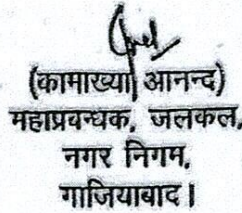 (कामाख्या आनन्द)
महाप्रबन्धक, जलकल,
नगर निगम,
गाजियाबाद।